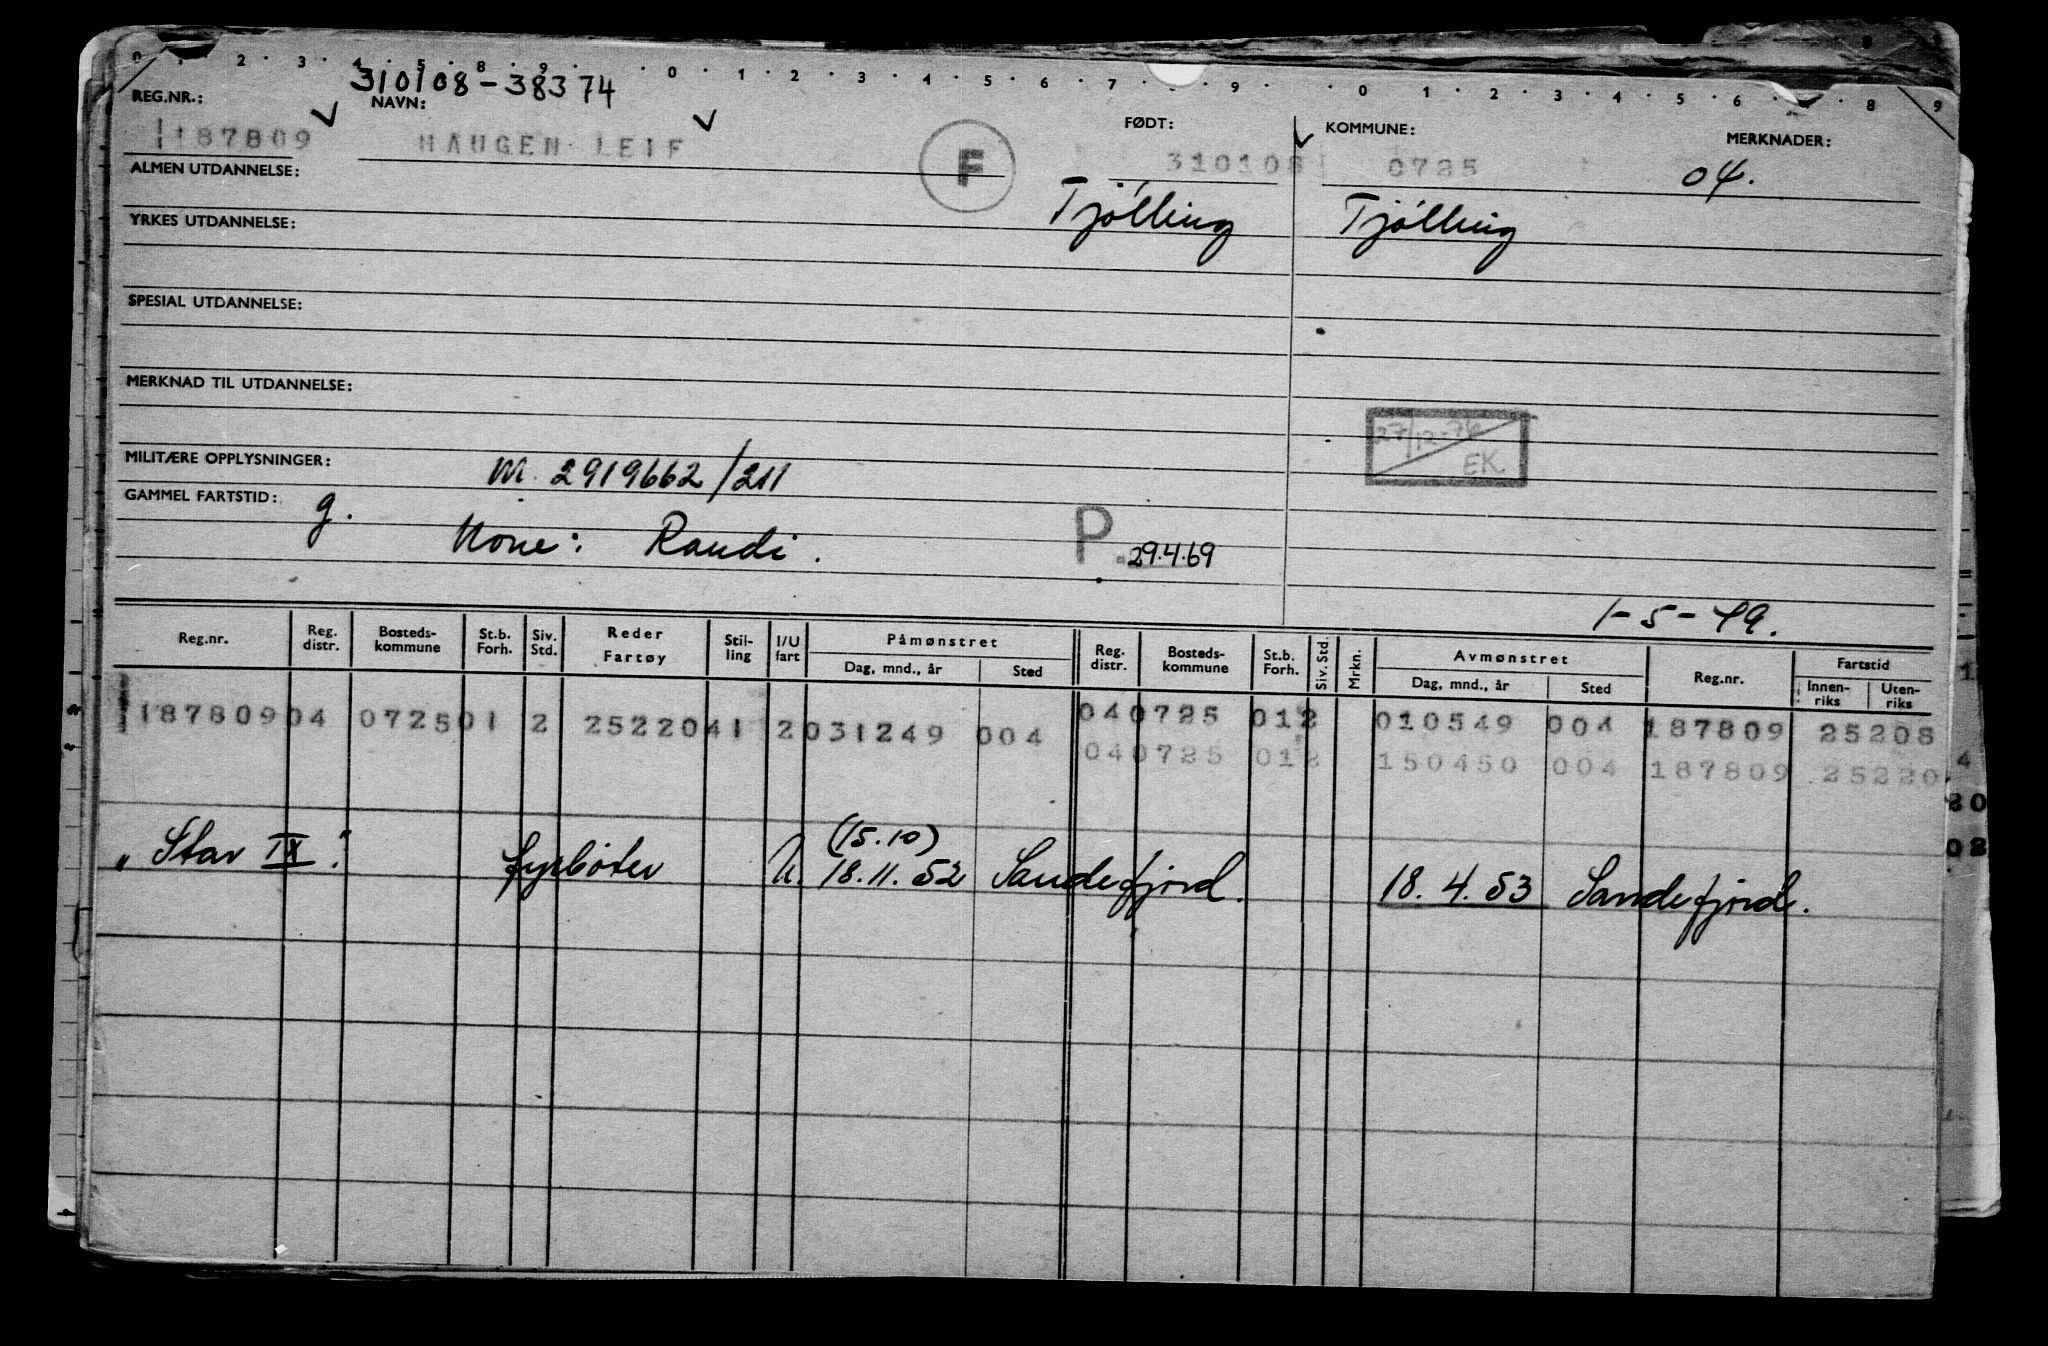 0 1 2 3 4 5 8 9 0 1 2 3 4 5 6 7 9 0 1 2 3 4 5 6 8 9
310108-38374
REG.NR.: NAVN: FØDT: KOMMUNE: MERKNADER:
187809 HAUGEN LEIF F 310108 0725 04.
ALMEN UTDANNELSE:
Tjølling Tjølling
YRKES UTDANNELSE:
SPESIAL UTDANNELSE:
MERKNAD TIL UTDANNELSE:
27/12-76
EK
MILITÆRE OPPLYSNINGER: M. 2919662/211
GAMMEL FARTSTID: g.
Kone: Randi. P. 29.4.69
1-5-49.
Reg.nr. Reg. distr. Bosteds-kommune St.b. Forh. Siv. Std. Reder Fartøy Stil-ling I/U fart Påmønstret Reg. distr. Bosteds-kommune St.b. Forh. Siv. Std. Mrkn. Avmønstret Reg.nr. Fartstid
Dag, mnd., år Sted Dag, mnd., år Sted Innen-riks Uten-riks
187809 04 0725 01 2 2522041 2 031249 004 040725 012 010549 004 187809 25208
040725 012 150450 004 187809 25220
(15.10)
"Star IX". fyrbøter U. 18.11.52 Sandefjord. 18.4.53 Sandefjord.